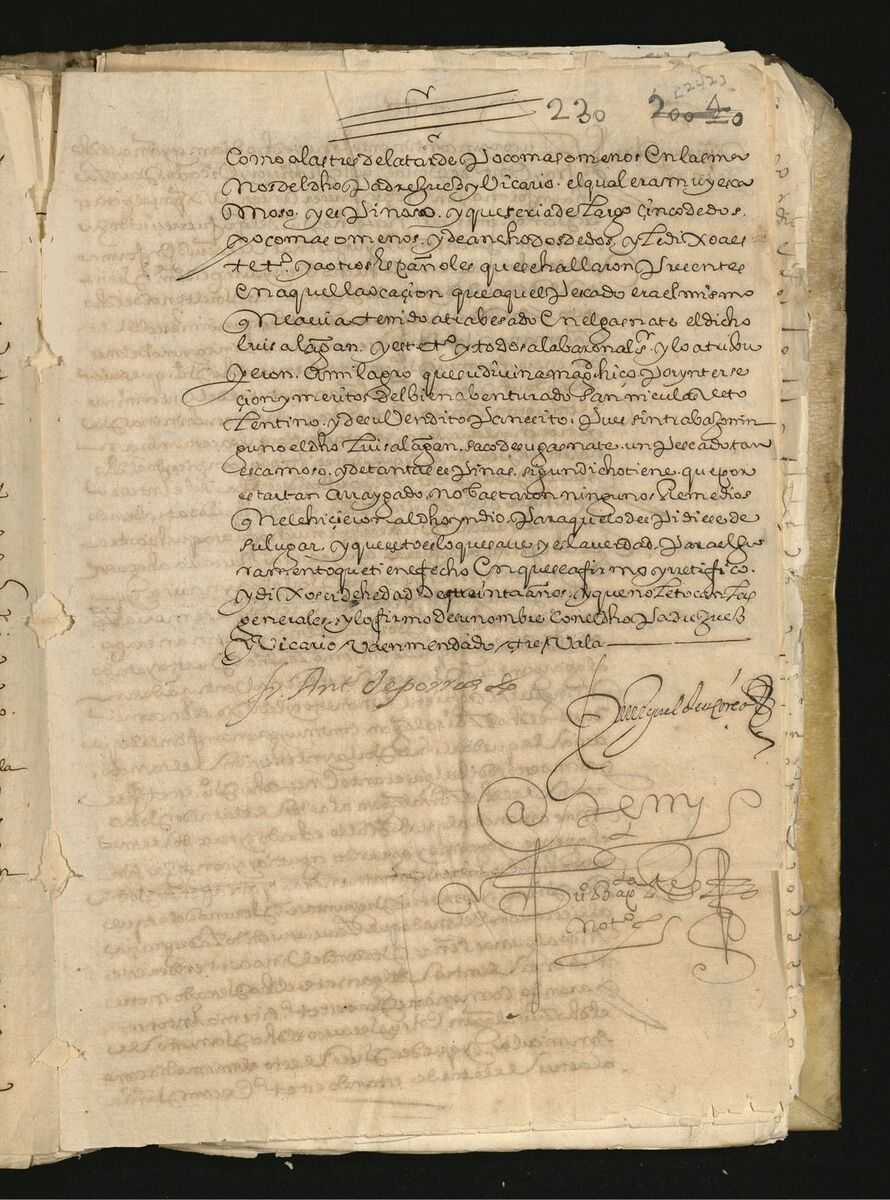 230 200
como a las tres de la tarde poco mas o menos en las ma
nos del dho Padre Juez y Vicario. el qual era muy esca
moso. y espinoso. y que seria de largo çinco dedos.
poco mas o menos. y de ancho dos dedos. y le dixo a es
te tº. y a otros españoles que se hallaron presentes
en aquella ocaçion que aquel pescado era el mismo
que avia tenido atrabesado en el gasnate el dicho
luis alagan. y este tº y todos alabaron al sr. y lo atribu
yeron. a milagro que su divina magd hiço por ynterse
çion y meritos del bien abenturado san niculas de to
lentino. y de su bendito panecito. pues sin trabazon nin
guno el dho luis alagan. saco de su gasnate. un pescado tan
escamoso. y de tantas espinas. segun dicho tiene. que por
estar tan arraygado. no bastaron ningunos remedios
que le hiçieron al dho yndio. para que lo despidiese de
su lugar. y que esto es lo que save y es la verdad. para el ju
ramento que tiene fecho en que se afirmo y rretifico.
y dixo ser de hedad de treinta años. y que no le tocan las
generales. y lo firmo de su nombre con el dho Padre Juez
y Vicario va enmendado tre vala
fr. Antº de porras
miguel de
Ante my
Juº Bapta
Notº